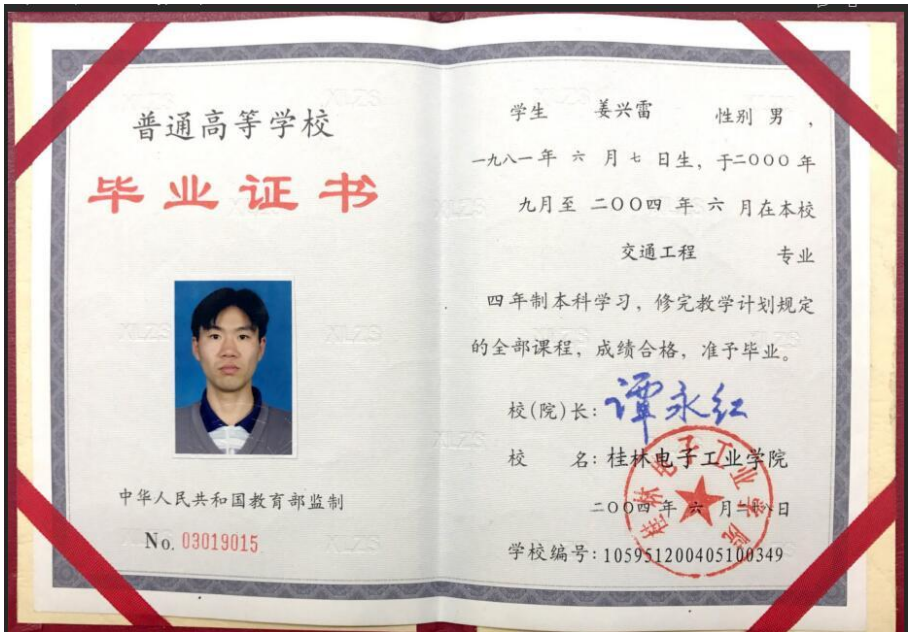 普通高等学校
毕业证书
中华人民共和国教育部监制
No. 03019015
学生 姜兴雷 性别 男，
一九八一年 六 月 七 日生，于二〇〇〇年
九月至 二〇〇四 年 六 月在本校
交通工程 专业
四年制本科学习，修完教学计划规定
的全部课程，成绩合格，准予毕业。
校(院)长：谭永红
校 名：桂林电子工业学院
二〇〇四 年 六 月二十八日
学校编号：105951200405100349
桂林电子工业学院
XLZS